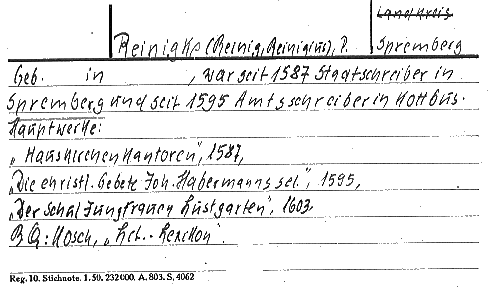 Landkreis
Reinigke (Reinig, Reinigius), P. Spremberg
Geb. in , war seit 1587 Staatschreiber in
Spremberg und seit 1595 Amtsschreiber in Kottbus.
Hauptwerke:
„Hauskirchen Kantoren", 1587,
„Die christl. Gebete Joh. Habermanns sel.", 1595,
„Der Schal Jungfrauen Lustgarten", 1603.
B Q: Mosch, „Lit.- Lexikon".
Reg. 10. Stichnote. 1. 50. 232000. A. 803. S. 4062